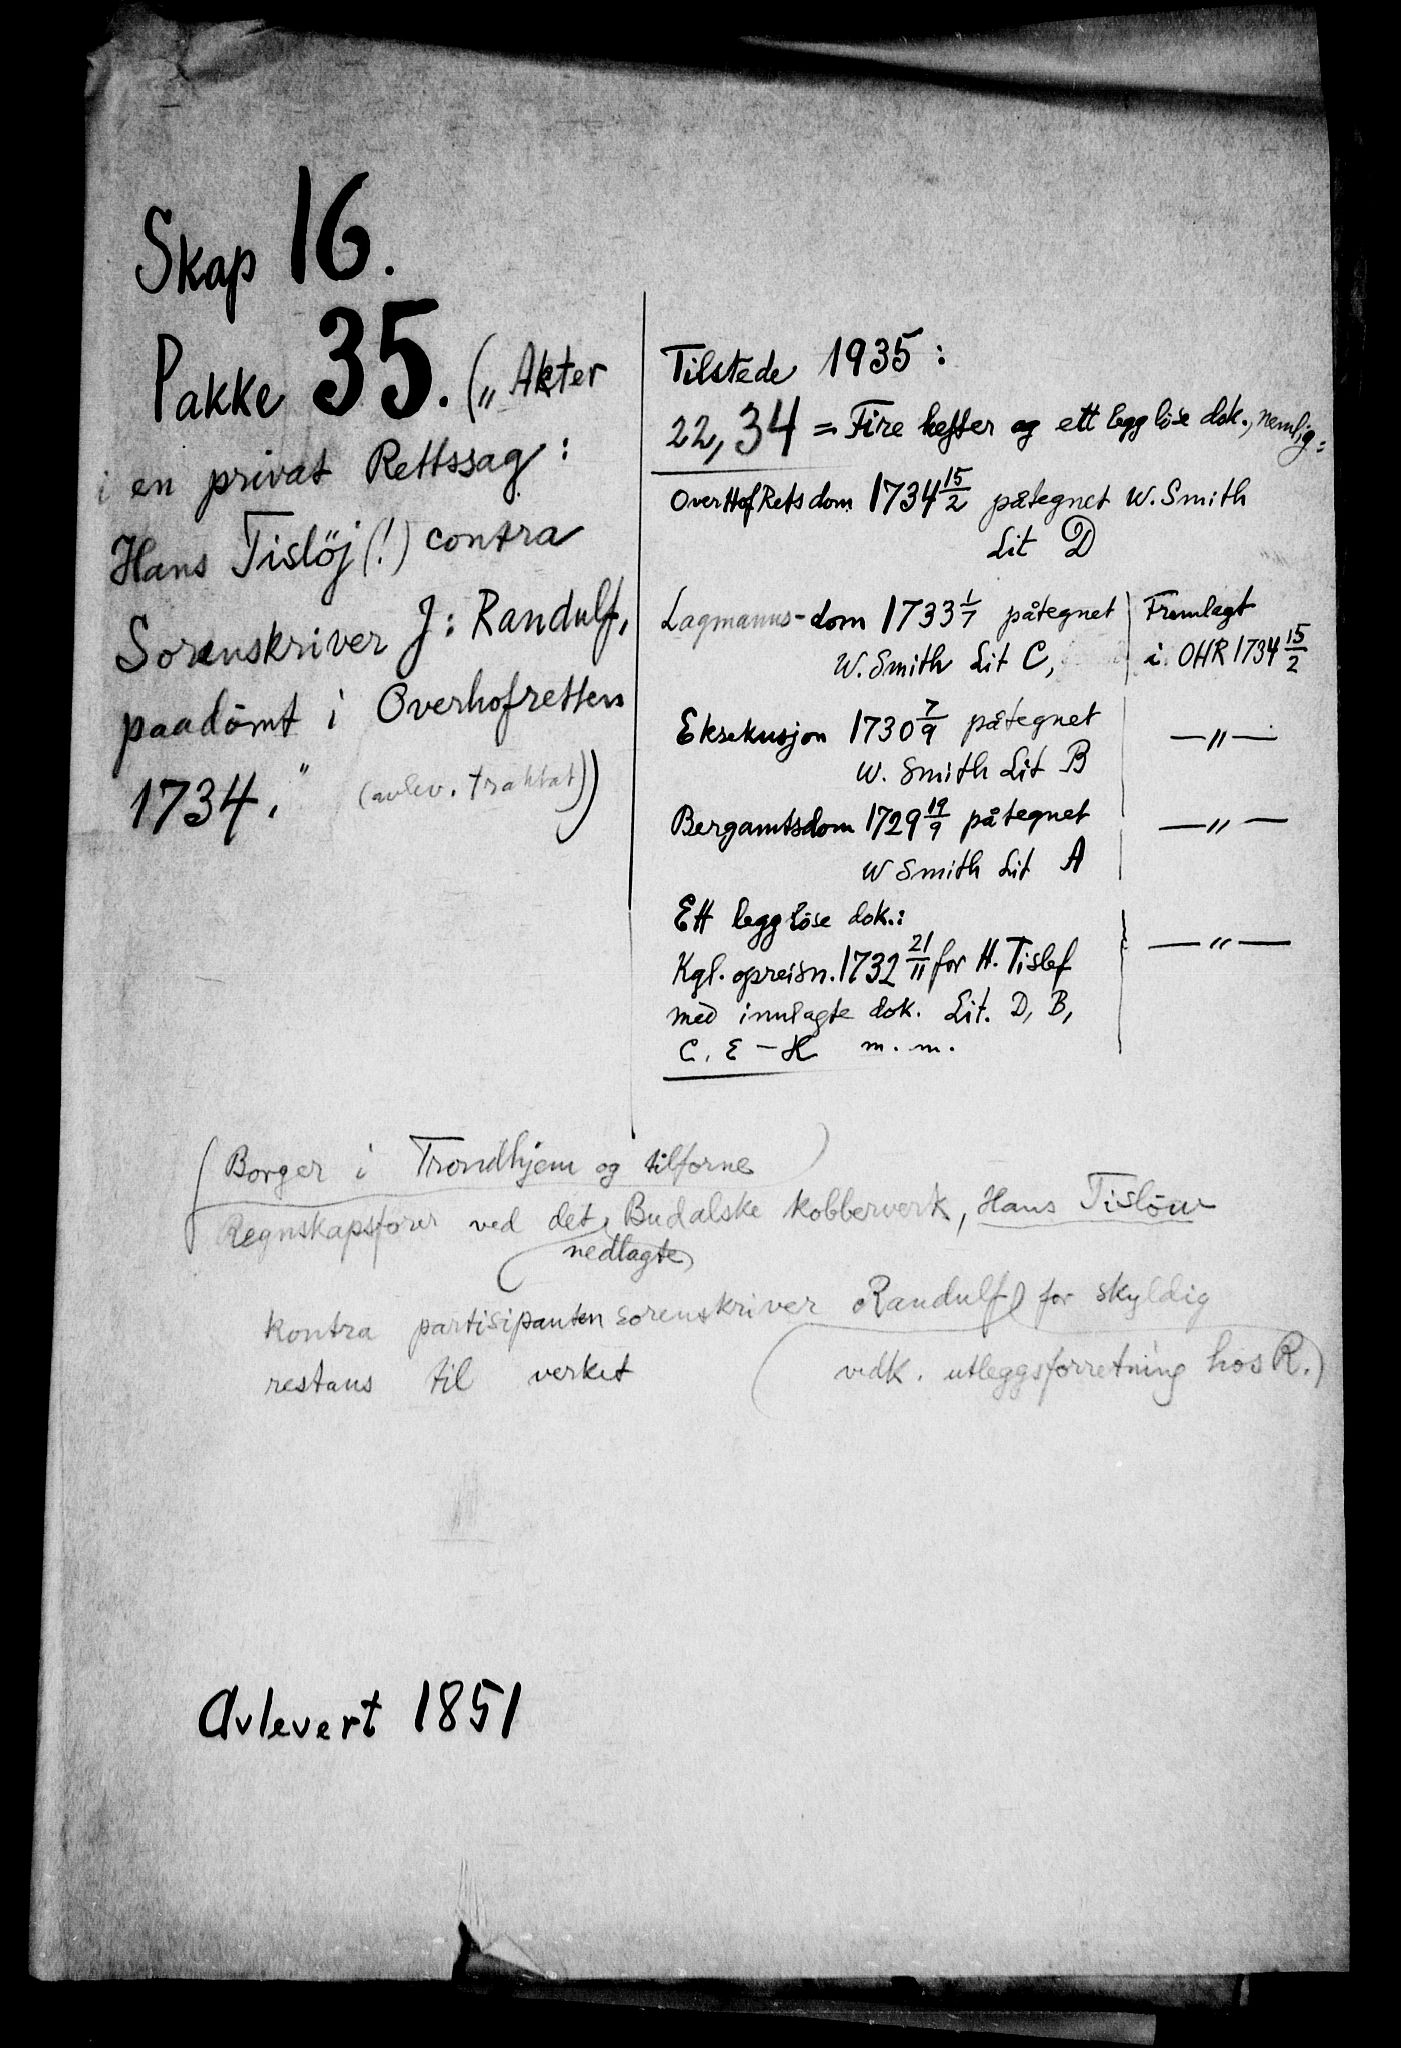 Skap 16.
Pakke 35. („ Akter
i en privat Rettssag:
Hans Tislöj (!) contra
Sorenskriver J: Randulf,
paadömt i Overhofretten
1734." (avlev. traktat))
Tilstede 1935:
22,34 = Fire hefter og ett legg löse dok., nemlig:
OverHofRetsdom 1734 15/2 påtegnet W. Smith
Lit D
Lagmanns-dom 1733 1/7 påtegnet
W. Smith Lit C,
Fremlagt
i OHR 1734 15/2
Eksekusjon 1730 7/9 påtegnet
W. Smith Lit B
— " —
Bergamtsdom 1729 19/9 påtegnet
W Smith Lit A
— " —
Ett legg löse dok.:
Kgl. opreisn. 1732 21/11 for H. Tislef
med innlagte dok. Lit. D, B,
C, E – H m. m.
— " —
(Borger i Trondhjem og tilforne)
Regnskapsförer ved det Budalske kobberverk, Hans Tislöw
nedlagte
kontra partisipanten sorenskriver Randulf for skyldig
restans til verket (vedk. utleggsforretning hos R.)
Avlevert 1851